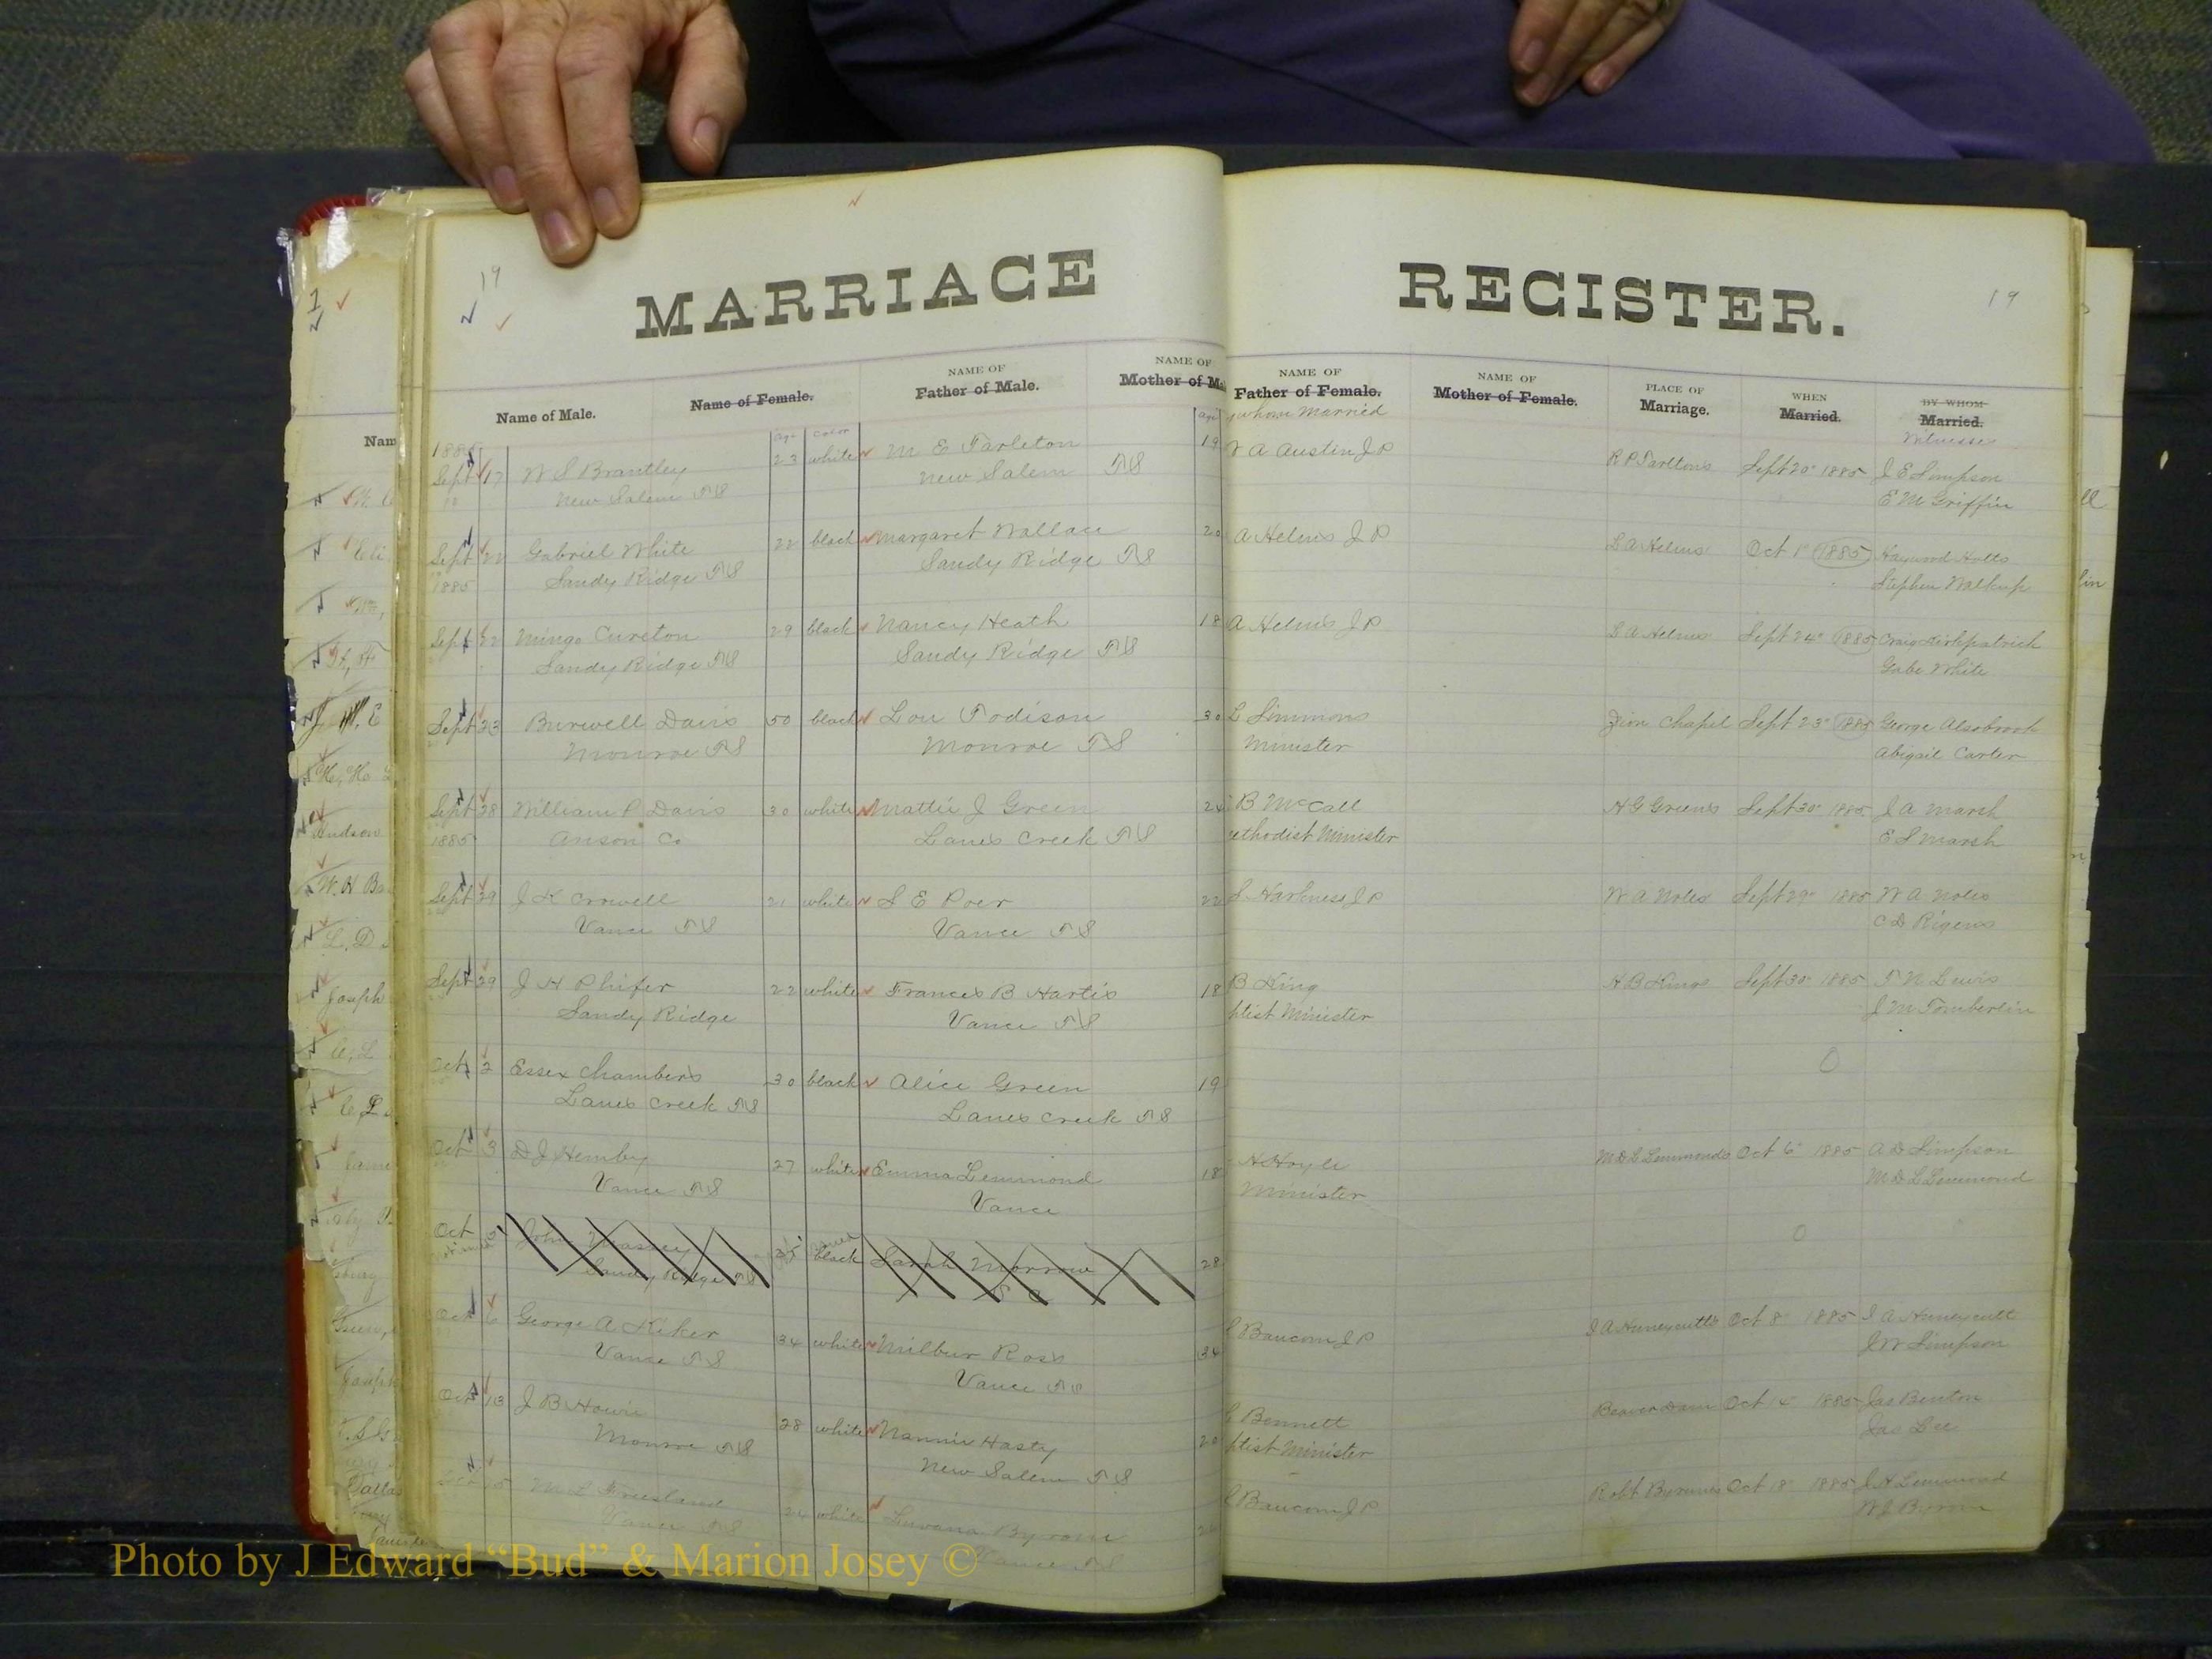 19
MARRIAGE
Name of Male.
Name of Female.
NAME OF
Father of Male.
NAME OF
Mother of Ma
age color
1885
Sept 17 W S Brantley 23 white M E Tarleton 19
New Salem TS New Salem TS
Sept 22 Gabriel White 22 black Margaret Wallace 20
1885 Sandy Ridge TS Sandy Ridge TS
Sept 22 Mingo Cureton 29 black Nancy Heath 18
Sandy Ridge TS Sandy Ridge TS
Sept 23 Burwell Davis 50 black Lou 30
Monroe TS Monroe TS
Sept 28 William P Davis 30 white Mattie J Green 24
1885 Anson Co Lanes Creek TS
Sept 29 J K Crowell 21 white S E Poer 22
Vance TS Vance TS
Sept 29 J H Phifer 22 white Frances B Hartis 18
Sandy Ridge Vance TS
Oct 2 Essex Chambers 30 black Alice Green 19
Lanes Creek TS Lanes Creek TS
Oct 3 D J Hemby 27 white Emma Lemmond 18
Vance TS Vance
Oct John Massey 35 black Sarah Morrow 28
Sandy Ridge TS
Oct 6 George A Kiker 34 white Milbur Ross 34
Vance TS Vance TS
Oct 13 J B Howie 28 white Nannie Hasty 20
Monroe TS New Salem TS
M L 24 white Byrom
Vance TS Vance TS
REGISTER.
19
NAME OF
Father of Female.
NAME OF
Mother of Female.
PLACE OF
Marriage.
WHEN
Married.
BY WHOM
Married.
whom Married
Witnesses
A Austin J P R P Tarltons Sept 20 1885 J E Simpson
E M Griffin
A Helms J P S A Helms Oct 1 1885 Haywood Holts
Stephen Walkup
A Helms J P S A Helms Sept 24 1885 Craig Kirkpatrick
Gabe White
L Simmons Zion Chapel Sept 23 1885 George Alsobrook
Minister Abigail Carter
B McCall H G Greens Sept 30 1885 J A Marsh
ethodist Minister E S Marsh
S Harkness J P W A Notes Sept 29 1885 W A Notes
C D Rigens
B King H B Kings Sept 30 1885 T N Lewis
ptist Minister J M Tomberlin
0
H Hoyle M D L Lemmonds Oct 6 1885 A D Simpson
Minister M D L Lemmond
0
Baucom J P J A Huneycutts Oct 8 1885 J A Huneycutt
J W Simpson
Bennett Beaver Dam Oct 14 1885 Jas Benton
ptist Minister Jas Lee
Baucom J P Robt Byrums Oct 18 1885 J H Lemmond
W J Byrum
Photo by J Edward “Bud” & Marion Josey ©